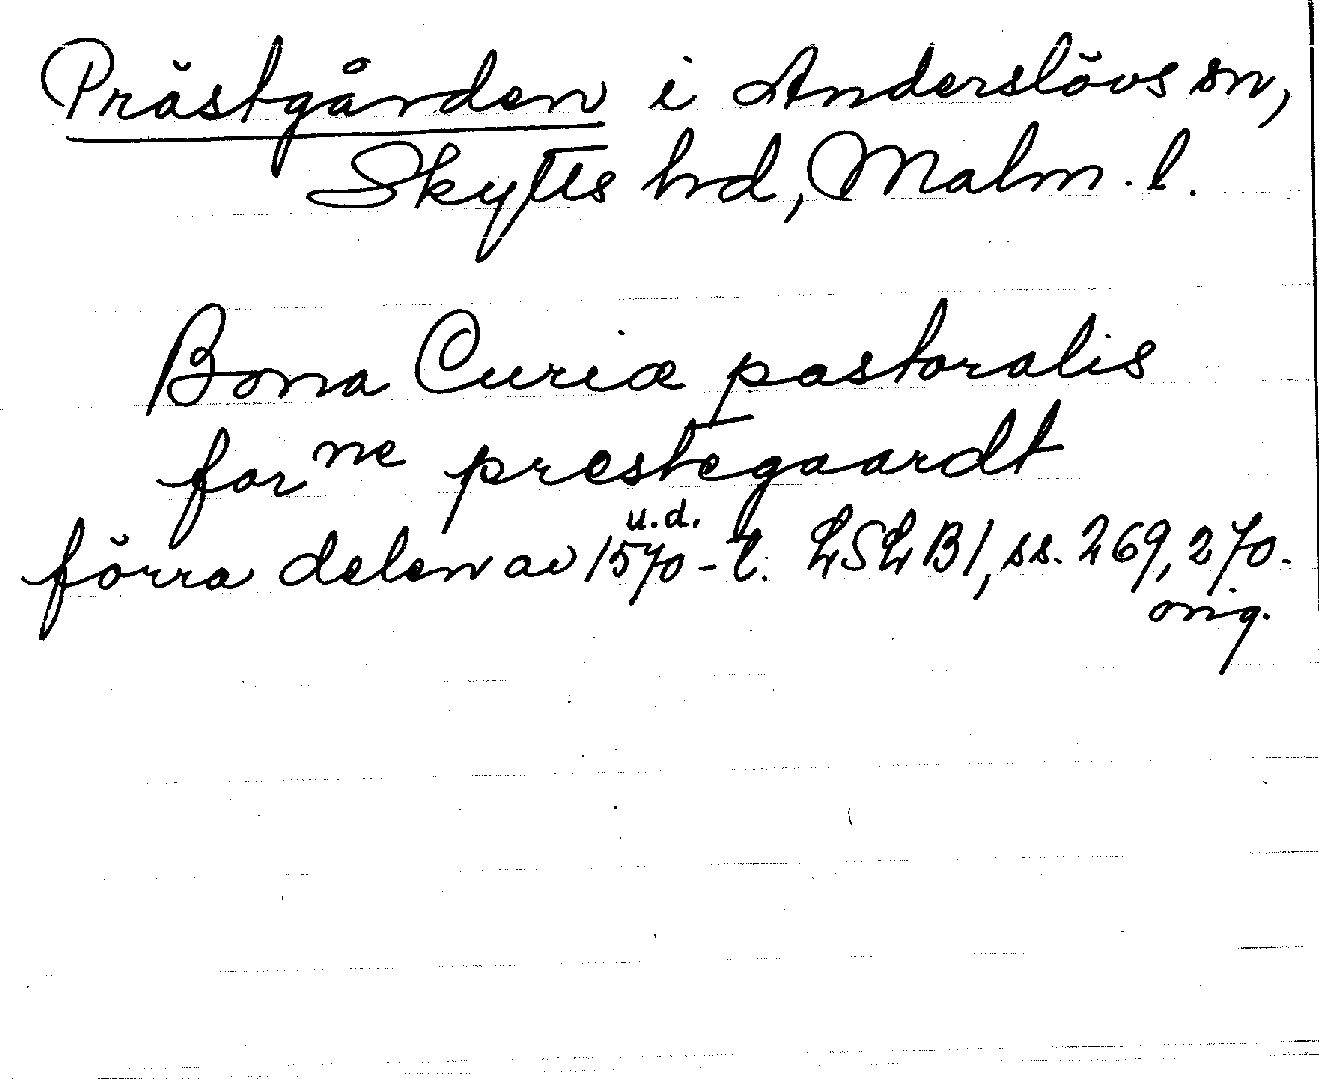 Prästgården i Anderslövs sn,
Skytts hd, Malm. l.
Bona Curiæ pastoralis
for ne prestegaardt
u.d.
förra delen av 1570-t. LSLB1, ss. 269, 270.
orig.